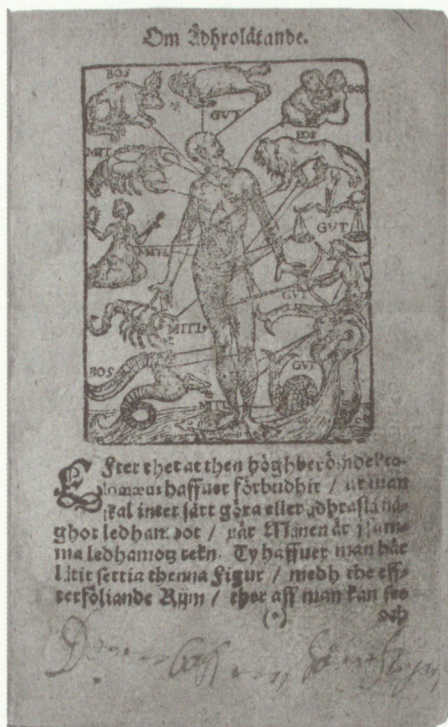 Om Ådhrolåtande.
BOS
GVT
BOS
MIT
BOS
GVT
MIT
GVT
MITL
BOS
GVT
MIT
Efter thet at then höghberömde Pto-
lomæus haffuer förbudhit / at man
skal intet sått göra eller ådhraslå nå-
ghot ledhamoot / når Månen är j sam-
ma ledhamotz tekn. Ty haffuer man här
låtit settia thenna Figur / medh the eff-
terföliande Rijm / ther aff man kan see
(*) och